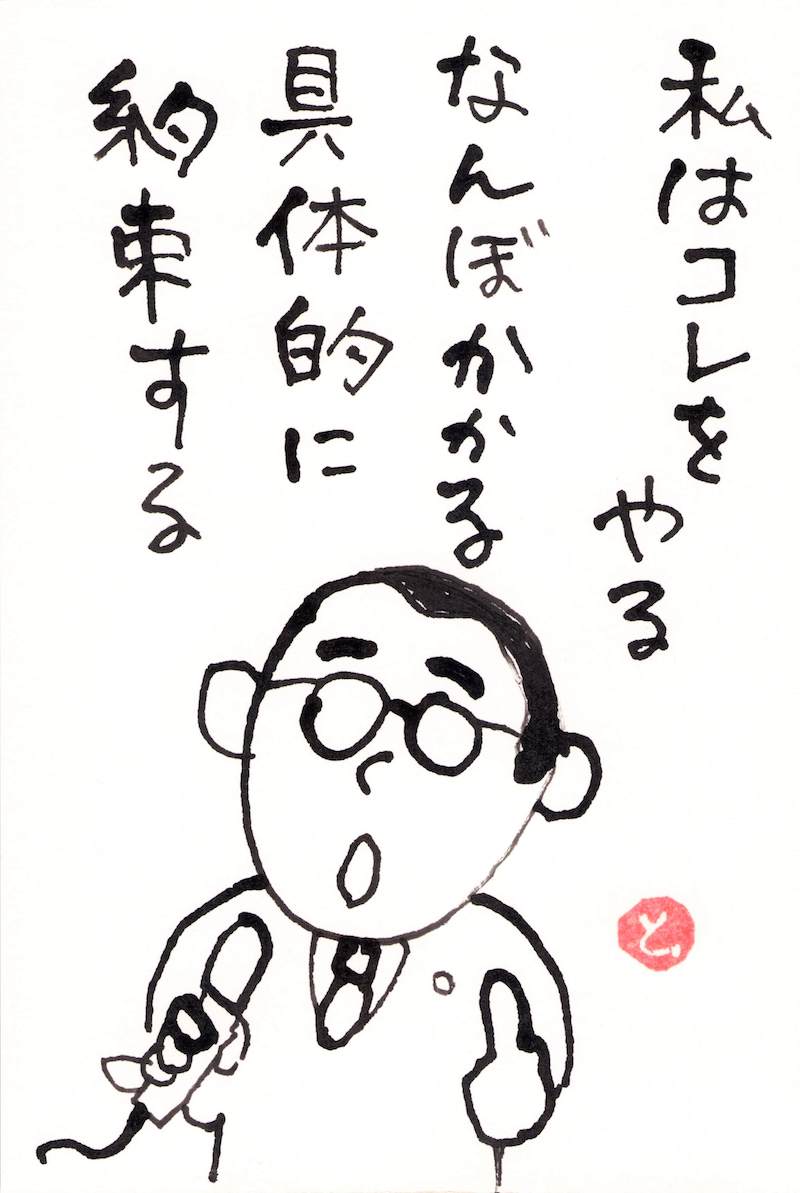 私はコレを
やる
なんぼかかる
具体的に
約束する
と.